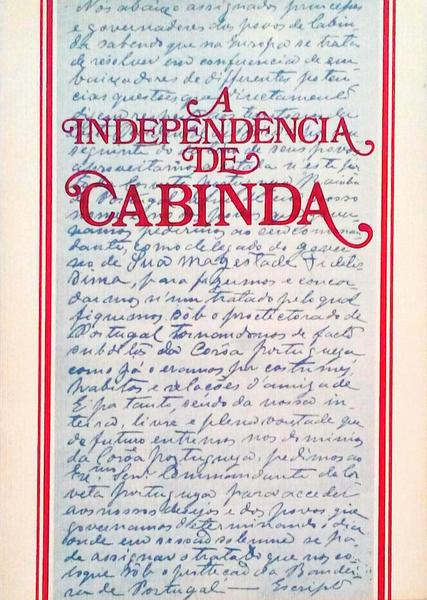 Nos abaixo assignados, principes
e governadores dos povos de Cabin
da sabendo que na Europa se trata
de resolver em conferencia de em
baixadores de differentes poten
cias questões que directamente
A
INDEPENDÊNCIA
DE
CABINDA
vamos, pedirmos ao seu comman
dante, como delegado do gover
no de Sua Magestade Fidelis
sima, para fazermos e concor
darmos n'um tratado pelo qual
fiquemos sob o protectorado de
Portugal tornando-nos de facto
subditos da Corôa Portugueza
como já o eramos por costumes,
habitos e relações d'amizade
E portanto, sendo da nossa in
teira, livre e plena vontade que
de futuro entremos nos dominios
da Corôa Portugueza, pedimos ao
Exmo Senr. Commandante da Cor
veta Portugueza para acceder
aos nossos desejos e dos povos que
governamos determinando o dia
onde em sessão solemne se ha
de assignar o tratado que nos col
loque sob a protecção da Bandei
ra de Portugal — Escripto